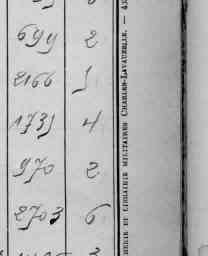 699 2
2166 5
1735 4
970 2
2703 6
IMPRIMERIE ET LIBRAIRIE MILITAIRES CHARLES-LAVAUZELLE. — 43